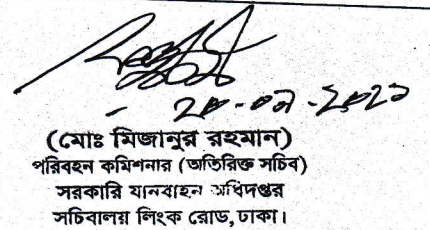 (মোঃ মিজানুর রহমান)
পরিবহন কমিশনার (অতিরিক্ত সচিব)
সরকারি যানবাহন অধিদপ্তর
সচিবালয় লিংক রোড, ঢাকা।